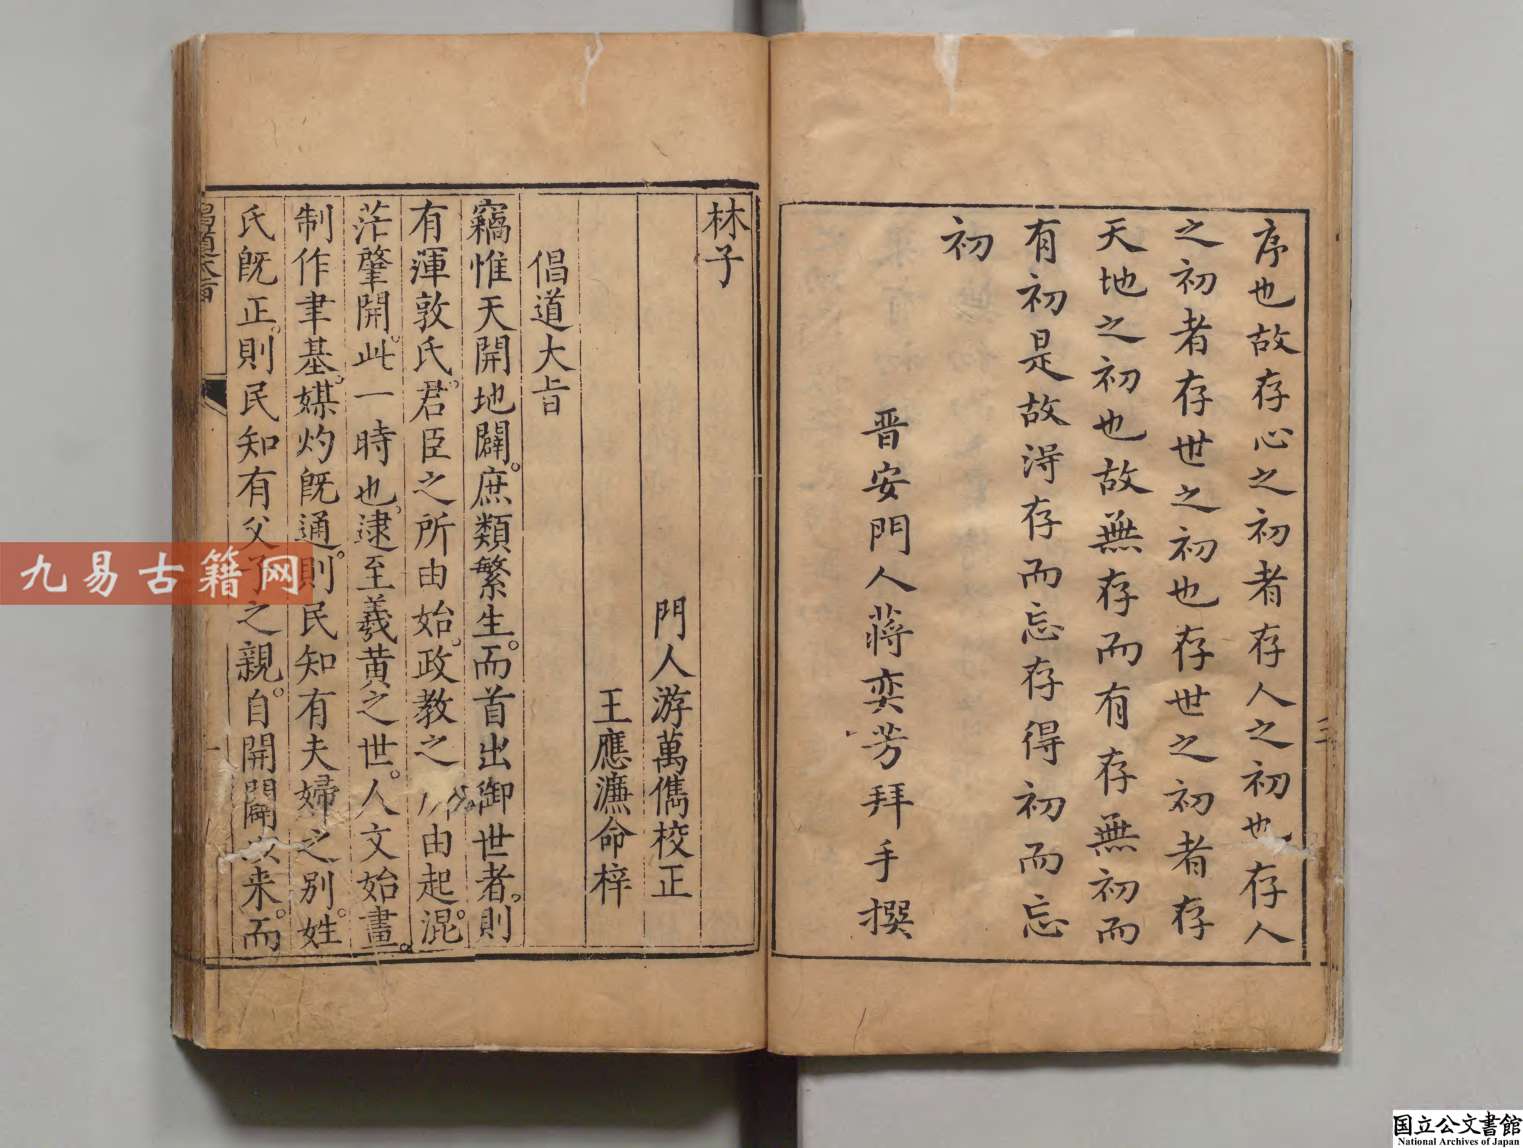 序也故存心之初者存人之初也存人
之初者存世之初也存世之初者存
天地之初也故無存而有存無初而
有初是故得存而忘存得初而忘
初
晋安門人蔣奕芳拜手撰
三
林子
門人游萬儁校正
王應濂命梓
倡道大旨
竊惟天開地闢。庶類繁生。而首出御世者。則
有渾敦氏。君臣之所由始。政教之所由起。混
茫肇開。此一時也。逮至羲黄之世。人文始畫。
制作聿基。媒灼旣通。則民知有夫婦之别。姓
氏旣正。則民知有父子之親。自開闢以来。而
倡道大旨
一
九易古籍网
国立公文書館
National Archives of Japan